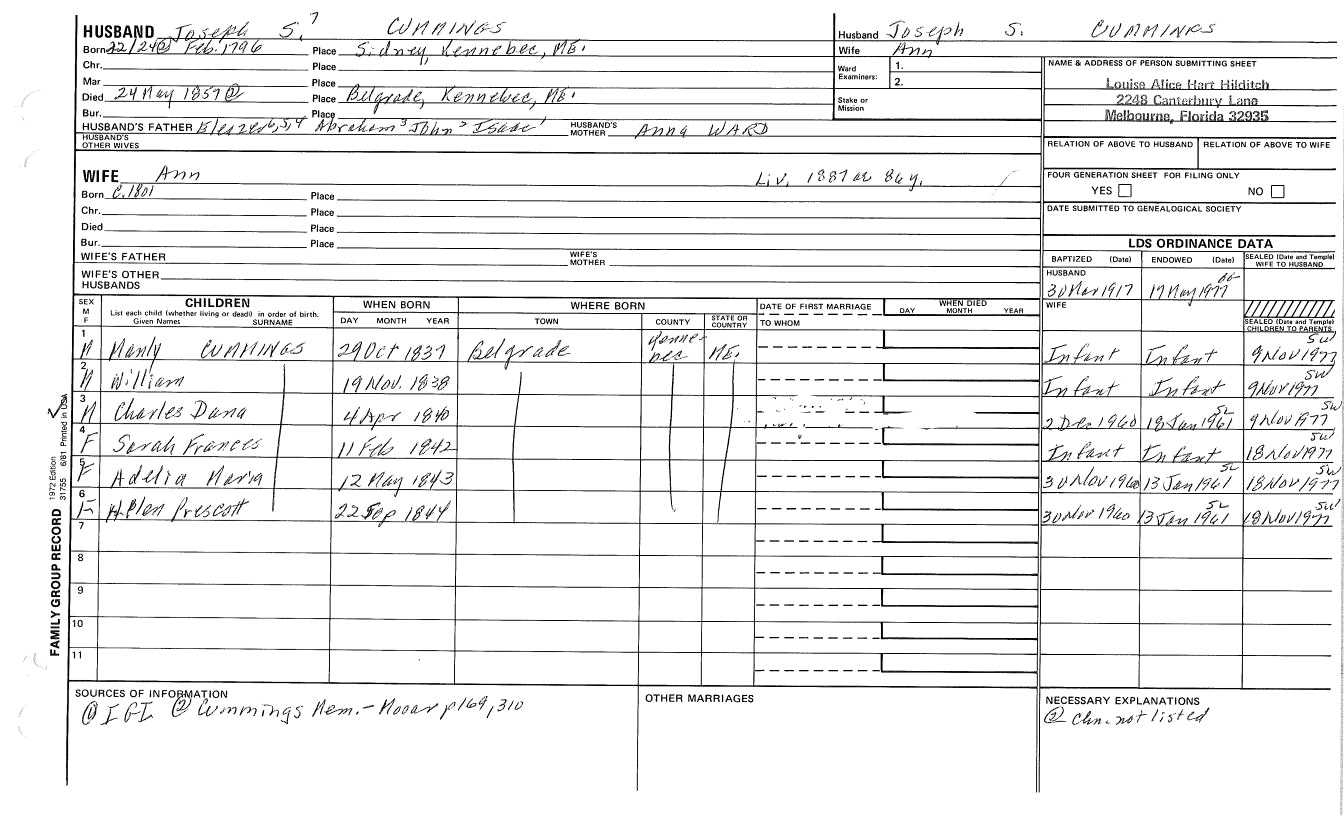 HUSBAND Joseph S.⁷ CUMMINGS
Born 22/24② Feb. 1796 Place Sidney, Kennebec, ME.
Chr. Place
Mar Place
Died 24 May 1857② Place Belgrade, Kennebec, ME.
Bur. Place
HUSBAND'S FATHER Eleazer⁶,⁵,⁴ Abraham³ John² Isaac¹ HUSBAND'S MOTHER Anna WARD
HUSBAND'S OTHER WIVES
Husband Joseph S. CUMMINGS
Wife Ann
Ward Examiners: 1.
2.
Stake or Mission
NAME & ADDRESS OF PERSON SUBMITTING SHEET
Louise Alice Hart Hilditch
2248 Canterbury Lane
Melbourne, Florida 32935
RELATION OF ABOVE TO HUSBAND RELATION OF ABOVE TO WIFE
FOUR GENERATION SHEET FOR FILING ONLY
YES NO
DATE SUBMITTED TO GENEALOGICAL SOCIETY
WIFE Ann Liv. 1887 ae 86 y.
Born C. 1801 Place
Chr. Place
Died Place
Bur. Place
WIFE'S FATHER WIFE'S MOTHER
WIFE'S OTHER HUSBANDS
LDS ORDINANCE DATA
BAPTIZED (Date) ENDOWED (Date) SEALED (Date and Temple) WIFE TO HUSBAND
HUSBAND
30 Mar 1917 17 May 1977
WIFE
SEALED (Date and Temple) CHILDREN TO PARENTS
SEX M F CHILDREN WHEN BORN WHERE BORN DATE OF FIRST MARRIAGE WHEN DIED
List each child (whether living or dead) in order of birth. Given Names SURNAME DAY MONTH YEAR TOWN COUNTY STATE OR COUNTRY TO WHOM DAY MONTH YEAR
1 M Manly CUMMINGS 29 Oct 1837 Belgrade Kennebec ME. Infant Infant 9 Nov 1977 SW
2 M William 19 Nov. 1838 Infant Infant 9 Nov 1977 SW
3 M Charles Dana 4 Apr 1840 2 Dec 1960 18 Jan 1961 SL 9 Nov 1977 SW
4 F Sarah Frances 11 Feb 1842 Infant Infant 18 Nov 1977 SW
5 F Adelia Maria 12 May 1843 30 Nov 1960 13 Jan 1961 SL 18 Nov 1977 SW
6 F Helen Prescott 22 Sep 1844 30 Nov 1960 13 Jan 1961 SL 18 Nov 1977 SW
7
8
9
10
11
FAMILY GROUP RECORD
1972 Edition
31755 6/81 Printed in USA
SOURCES OF INFORMATION
① IGI ② Cummings Mem. - Mooar p 169, 310
OTHER MARRIAGES
NECESSARY EXPLANATIONS
② Chn. not listed